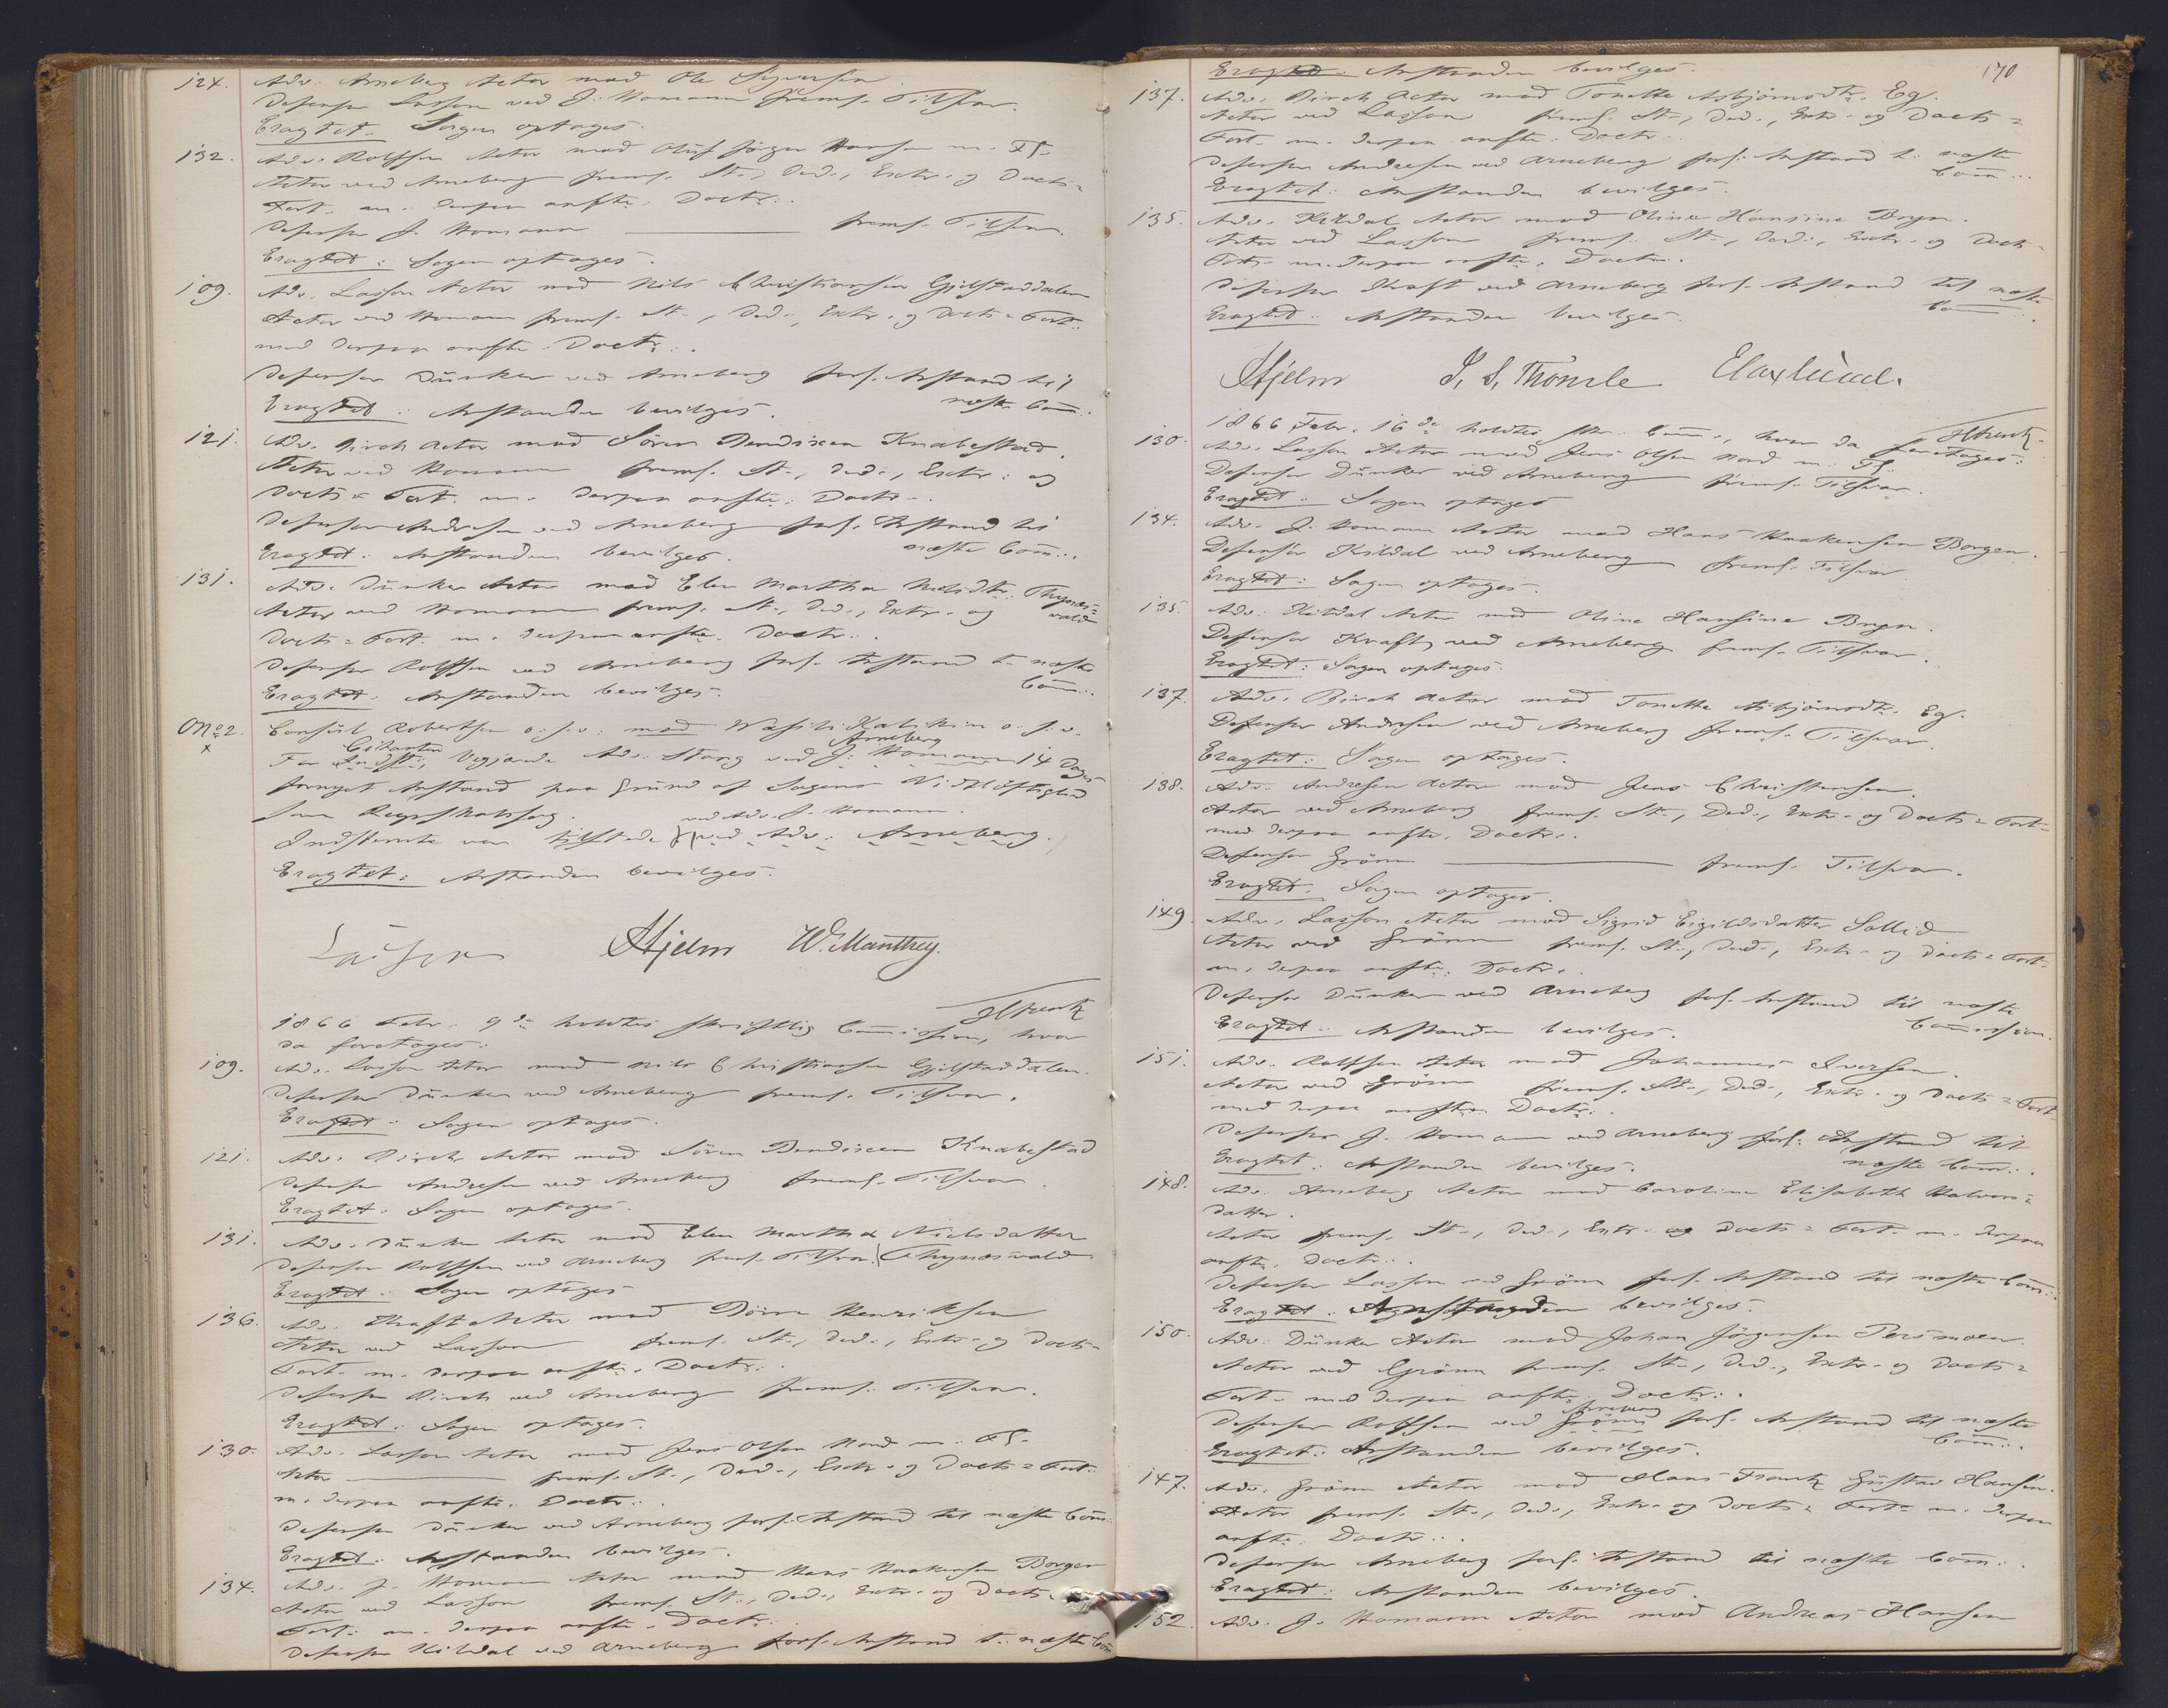 124. Adv. Arneberg Actor mod Ole Syversen
Defensor Lasson ved J. Homann frems. Tilsvar.
Eragtet: Sagen optages.
132. Adv. Rolfsen Actor mod Oluf Jörgen Hansen m. Fl.
Actor ved Arneberg frems. St., Ded., Extr. og Docts=
Fort. m. derpaa anfte. Doctr..
Defensor J. Homann frems. Tilsvar.
Eragtet: Sagen optages.
109. Adv. Lasson Actor mod Nils Christiansen Gjilstaddalen
Actor ved Homann frems. St., Ded., Extr. og Docts= Fort.
med derpaa anfte. Doctr..
Defensor Dunker ved Arneberg forl. Anstand til
næste Com̄..
Eragtet: Anstanden bevilges.
121. Adv. Birch Actor mod Sören Bendixen Knabestad.
Actor ved Homann frems. St., Ded., Extr. og
Docts= Fort. m. derpaa anfte. Doctr..
Defensor Andresen ved Arneberg forl. Anstand til
næste Com̄..
Eragtet: Anstanden bevilges.
131. Adv. Dunker Actor mod Elen Martha Nielsdtr. Thynæs=
vald
Actor ved Homann frems. St., Ded., Extr. og
Docts= Fort. m. derpaa anfte. Doctr..
Defensor Rolfsen ved Arneberg forl. Anstand t. næste
Com̄..
Eragtet: Anstanden bevilges.
No 2. Consul Robertson o. s. v. mod Wasili Kalikin o. s. v.
Citanten Arneberg
For Indst., begjærede Adv. Stang ved J. Homann 14 Dages
fornyet Anstand paa Grund af Sagens Vidtløftighed
som Regnskabssag.
ved Adv. J. Homann.
Indstevnte var tilstede ved Adv. Arneberg.
Eragtet: Anstanden bevilges.
Lasson Hjelm W. Manthey.
1866 Febr. 9de holdtes skriftlig Com̄ission, hvor
da foretoges:
109. Adv. Lasson Actor mod Nils Christiansen Gjilstaddalen.
Defensor Dunker ved Arneberg frems. Tilsvar.
Eragtet: Sagen optages.
121. Adv. Birch Actor mod Sören Bendixen Knabestad
Defensor Andresen ved Arneberg frems. Tilsvar.
Eragtet: Sagen optages.
131. Adv. Dunker Actor mod Elen Martha Nielsdatter
Defensor Rolfsen ved Arneberg frems. Tilsvar. Thynæsvald
Eragtet: Sagen optages
136. Adv. Kraft Actor mod Henriksen
Actor ved Lasson frems. St., Ded., Extr. og Docts=
Fort. m. derpaa anfte. Doctr..
Defensor Birch ved Arneberg frems. Tilsvar.
Eragtet: Sagen optages.
130. Adv. Lasson Actor mod Jens Olsen Nord m. Fl.
Actor frems. St., Ded., Extr. og Docts= Fort.
m. derpaa anfte. Doctr..
Defensor Dunker ved Arneberg forl. Anstand til næste Com̄..
Eragtet: Anstanden bevilges.
134. Adv. J. Homann Actor mod Hans Haakensen Borgen
Actor ved Lasson frems. St., Ded., Extr. og Docts=
Fort. m. derpaa anfte. Doctr..
Defensor Kildal ved Arneberg forl. Anstand t. næste Com̄
170
Eragtet: Anstanden bevilges.
137. Adv. Birch Actor mod Tonette Asbjörnsdtr. Eg.
Actor ved Lasson frems. St., Ded., Extr. og Docts=
Fort. m. derpaa anfte. Doctr..
Defensor Andresen ved Arneberg forl. Anstand t. næste
Com̄..
Eragtet: Anstanden bevilges.
135. Adv. Kildal Actor mod Oline Hansine Bryn.
Actor ved Lasson frems. St., Ded., Extr. og Docts=
Fort. m. derpaa anfte. Doctr..
Defensor Kraft ved Arneberg forl. Anstand til næste
Com̄..
Eragtet: Anstanden bevilges.
Hjelm
1866 Febr. 16de holdtes skr. Com̄., hvor da foretoges:
130. Adv. Lasson Actor mod Jens Olsen Nord m. Fl.
Defensor Dunker ved Arneberg frems. Tilsvar.
Eragtet: Sagen optages
134. Adv. J. Homann Actor mod Hans Haakensen Borgen.
Defensor Kildal ved Arneberg frems. Tilsvar
Eragtet: Sagen optages.
135. Adv. Kildal Actor mod Oline Hansine Bryn.
Defensor Kraft ved Arneberg frems. Tilsvar.
Eragtet: Sagen optages.
137. Adv. Birch Actor mod Tonette Asbjörnsdtr. Eg.
Defensor Andresen ved Arneberg frems. Tilsvar.
Eragtet: Sagen optages.
138. Adv. Andresen Actor mod Jens Christensen.
Actor ved Arneberg frems. St., Ded., Extr. og Docts= Fort.
med derpaa anfte. Doctr..
Defensor Grönn frems. Tilsvar.
Eragtet: Sagen optages.
149. Adv. Lasson Actor mod Sigrid Eigildsdatter Sollid
Actor ved Grönn frems. St., Ded., Extr. og Docts= Fort.
m. derpaa anfte. Doctr..
Defensor Dunker ved Arneberg forl. Anstand til næste
Com̄ission.
Eragtet: Anstanden bevilges.
151. Adv. Rolfsen Actor mod Johannes Iversen.
Actor ved Grönn frems. St., Ded., Extr. og Docts= Fort
med derpaa anfte. Doctr..
Defensor J. Homann ved Arneberg forl. Anstand til
næste Com̄..
Eragtet: Anstanden bevilges.
148. Adv. Arneberg Actor mod Caroline Elisabeth Halvors=
datter.
Actor frems. St., Ded., Extr. og Docts= Fort. m. derpaa
anfte. Doctr..
Defensor Lasson ved Grönn forl. Anstand til næste Com̄..
Eragtet: Anstanden bevilges.
150. Adv. Dunker Actor mod Johan Jörgensen Persmoen
Actor ved Grönn frems. St., Ded., Extr. og Docts=
Fort. med derpaa anfte. Doctr..
Arneberg
Defensor Rolfsen ved Grönn forl. Anstand til næste
Com̄..
Eragtet: Anstanden bevilges.
147. Adv. Grönn Actor mod Hans Frantz Gustav Hansen.
Actor frems. St., Ded., Extr. og Docts= Fort. m. derpaa
anfte. Doctr..
Defensor Arneberg forl. Anstand til næste Com̄..
Eragtet: Anstanden bevilges.
152. Adv. J. Homann Actor mod Andreas Hansen